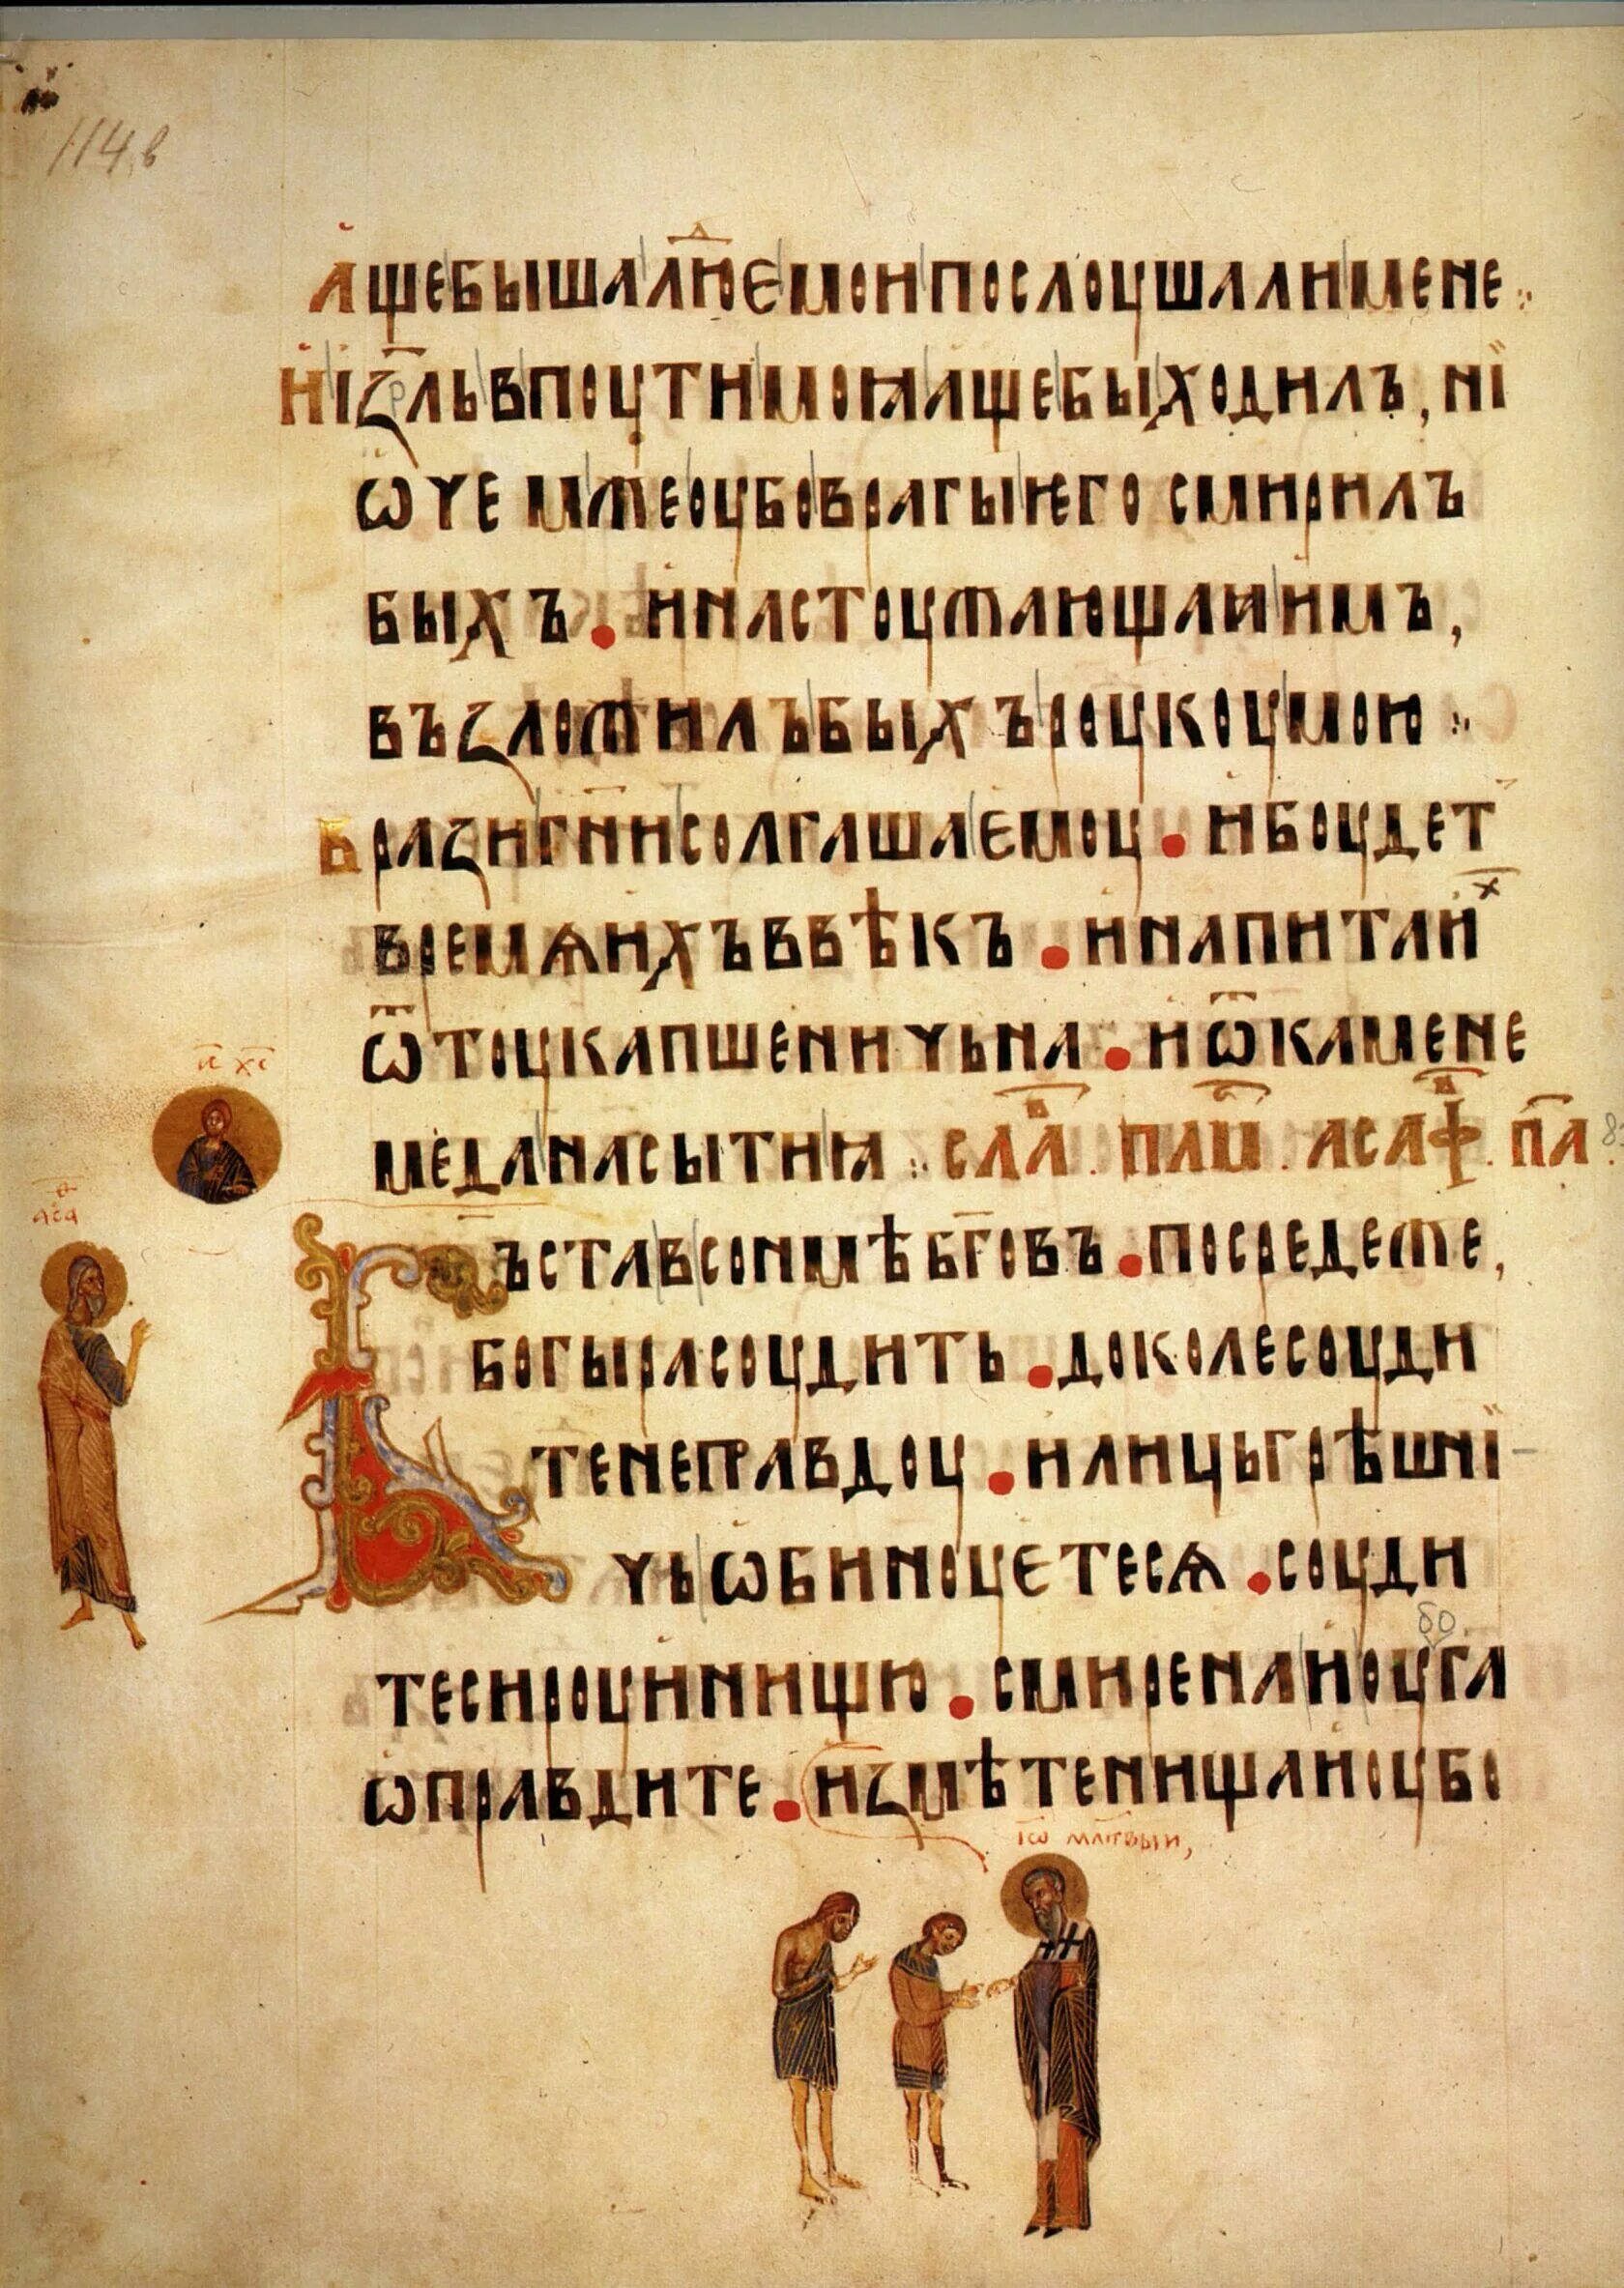 114,в
Аще быша люⷣе мои послоушали мене ⁘
Н҃ іꙁл҃ь в поути моꙗ аще бы ходилъ, нї
ѡче може оубо врагы ѥго смирилъ
быхъ • и на стоужающаи имъ,
въꙁложилъ быхъ роукоу мою ⁘
Враꙁи гн҃и солгаша емоу • и боудет
времѧ ихъ в вѣкъ • и напита иⷯ
ѿ тоука пшенична • и ѿ камене
меда насыти ꙗ ⁘ сла҃. п҃ам. асаф. п҃а
і҃с х҃с
аса
Бъ ста в сонмѣ б҃говъ • посреде же,
богы расоудить • доколе соуди
те неправдоу • и лицы грѣшнї
чь ѡбиноуетесѧ • соуди
бо
те сироу и нищю • смирена и оуга
ѡправдите • иꙁмѣте нища и оубо
іѡ мл҃твыи,